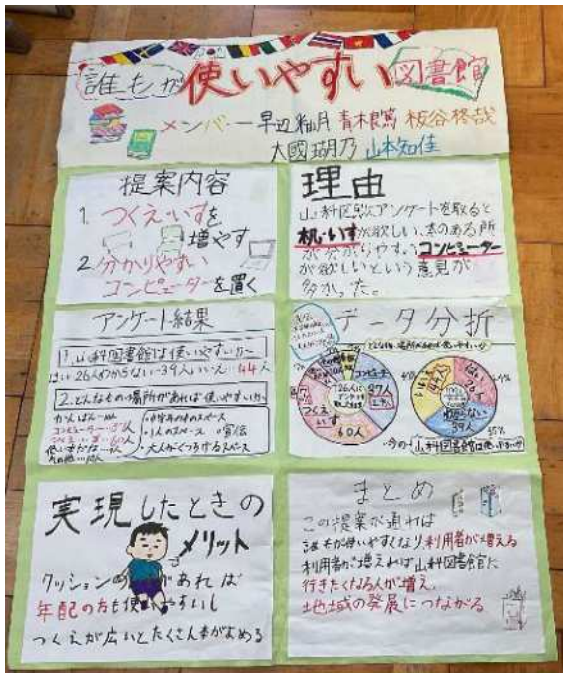 誰もが使いやすい図書館
メンバー 早辺 青木良篤 板谷柊哉
大國瑚乃 山本知佳
提案内容
1. つくえ・いすを
増やす
2. 分かりやすい
コンピューターを置く
理由
山科区民にアンケートを取ると
机・いすが欲しい、本のある所
が分かりやすいコンピューター
が欲しいという意見が
多かった。
アンケート結果
1. 山科図書館は使いやすいか
はい26人 わからない39人 いいえ 44人
2. どんなもの場所があれば使いやすいか
かんばん
コンピューター
つくえ・いす 60人
1人のスペース
大人がくつろげるスペース
データ分析
コンピューター
27人
つくえ
いす
60人
いいえ
44人
はい
26人
わからない
39人
35%
今の山科図書館は使いやすいか
実現したときの
メリット
クッションの があれば
年配の方も使いやすいし
つくえが広いとたくさん本がよめる
まとめ
この提案が通れば
誰もが使いやすくなり利用者が増える
利用者が増えれば山科図書館に
行きたくなる人が増え、
地域の発展につながる